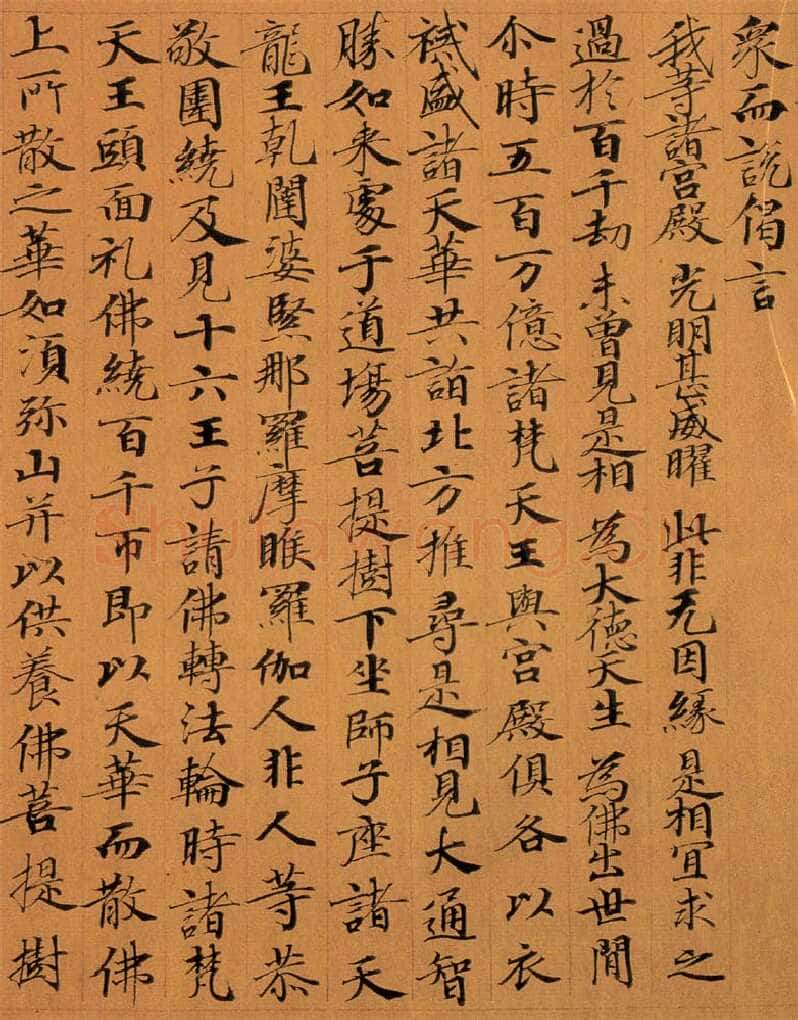 衆而說偈言
我等諸宮殿 光明甚威曜 此非无因緣 是相宜求之
過於百千劫 未曾見是相 為大德天生 為佛出世間
尒時五百万億諸梵天王與宮殿俱各以衣
裓盛諸天華共詣北方推尋是相見大通智
勝如来處于道場菩提樹下坐師子座諸天
龍王乹闥婆緊那羅摩睺羅伽人非人等恭
敬圍繞及見十六王子請佛轉法輪時諸梵
天王頭面礼佛繞百千帀即以天華而散佛
上所散之華如須弥山并以供養佛菩提樹